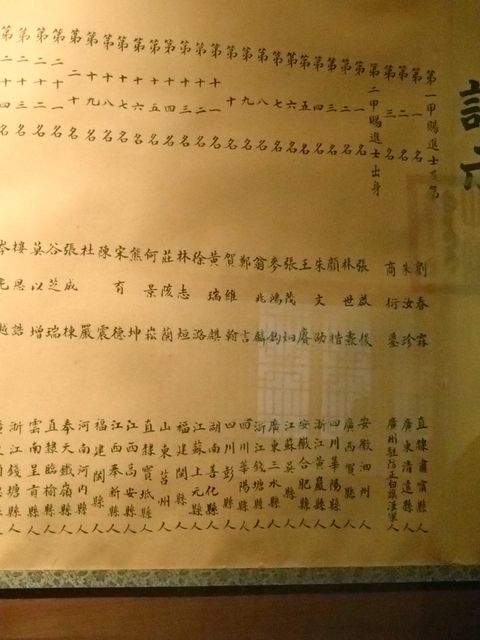 第一甲賜進士及第
第一名 劉春霖 直隸肅寧縣人
第二名 朱汝珍 廣東清遠縣人
第三名 商衍鎏 廣州駐防正白旗漢軍人
第二甲賜進士出身
第一名 張啟後 安徽泗州人
第二名 林世燾 廣西賀縣人
第三名 顏楷 四川華陽縣人
第四名 朱文劭 浙江黃巖縣人
第五名 王賡 安徽合肥縣人
第六名 張茂炯 江蘇吳縣人
第七名 麥鴻鈞 廣東三水縣人
第八名 翁兆麟 浙江錢塘縣人
第九名 鄭言 四川華陽縣人
第十名 賀維翰 四川彭縣人
第十一名 黃瑞麒 湖南善化縣人
第十二名 徐潞 江蘇上元縣人
第十三名 林志烜 福建閩縣人
第十四名 莊陔蘭 山東莒州人
第十五名 何景崧 直隸寶坻縣人
第十六名 熊坤 江西高安縣人
第十七名 宋育德 江西奉新縣人
第十八名 陳震 福建閩縣人
第十九名 杜嚴 河南河內縣人
第二十名 張成棟 奉天鐵嶺縣人
第二十一名 谷芝瑞 直隸臨榆縣人
第二十二名 莫以增 雲南呈貢縣人
第二十三名 樓思誥 浙江錢塘縣人
第二十四名